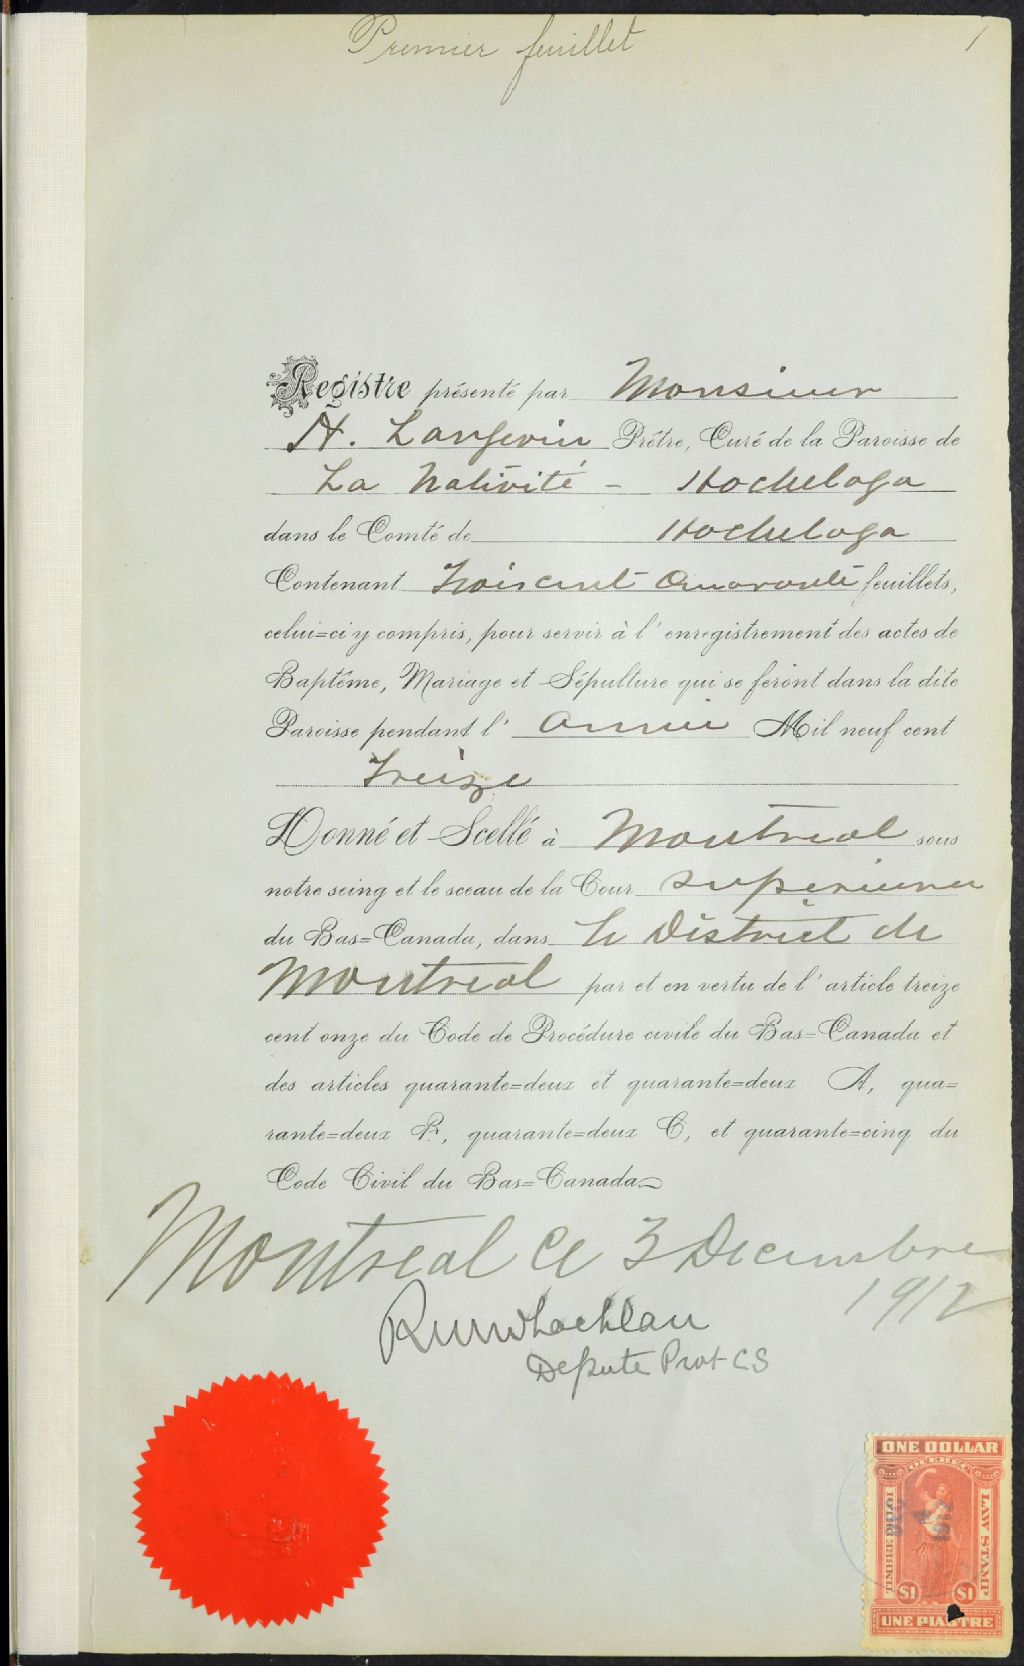 Premier feuillet
1
Registre présenté par Monsieur
A. Langevin Prêtre, Curé de la Paroisse de
La Nativité - Hochelaga
dans le Comté de Hochelaga
Contenant Trois cent Quarante feuillets,
celui=ci y compris, pour servir à l'enregistrement des actes de
Baptême, Mariage et Sépulture qui se feront dans la dite
Paroisse pendant l'année Mil neuf cent
Treize
Donné et Scellé à Montréal sous
notre seing et le sceau de la Cour supérieure
du Bas=Canada, dans le District de
Montreal par et en vertu de l'article treize
cent onze du Code de Procédure civile du Bas=Canada et
des articles quarante=deux et quarante=deux A, qua=
rante=deux B, quarante=deux C, et quarante=cinq du
Code Civil du Bas=Canada
Montreal Ce 3 Decembre
1912
Depute Prot CS
ONE DOLLAR
QUEBEC
TIMBRE DROIT
LAW STAMP
DEC
4
1912
$1 $1
UNE PIASTRE